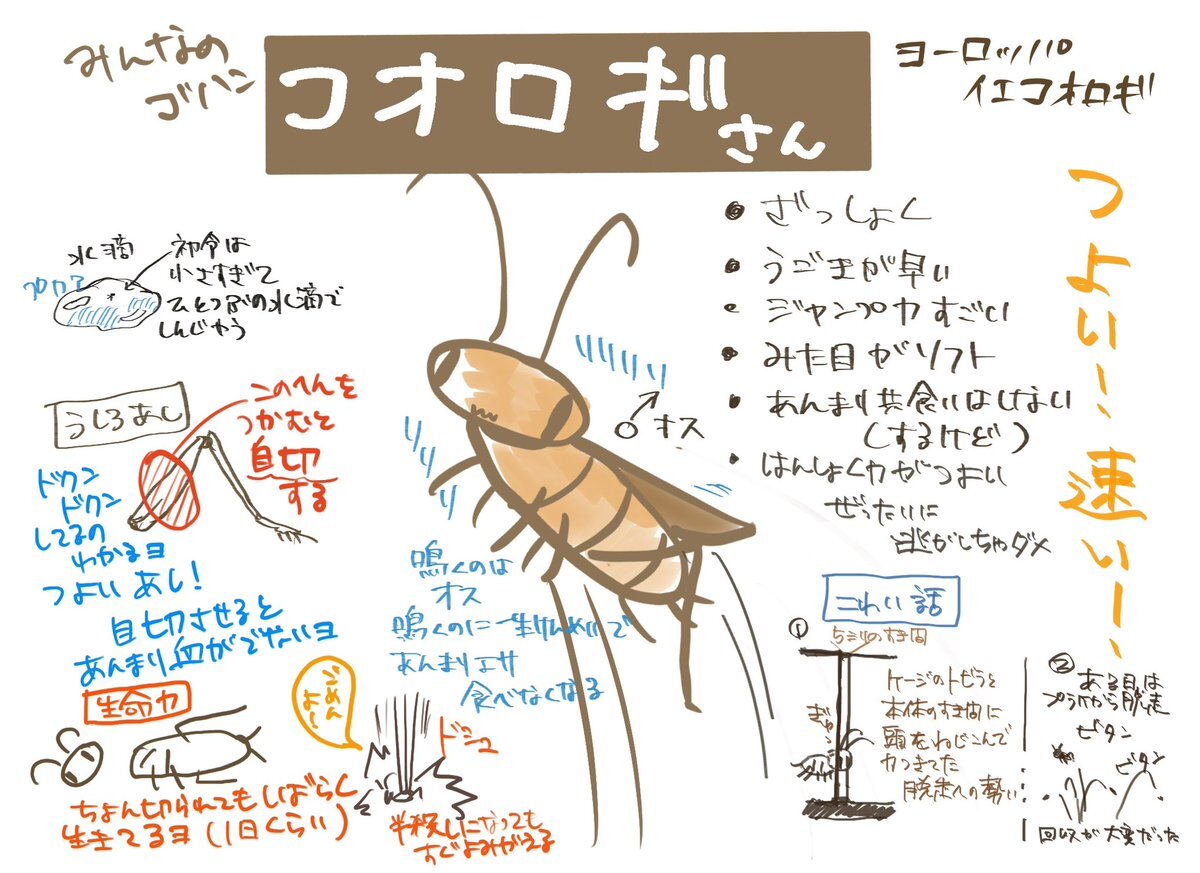 みんなの
ゴハン
コオロギさん
ヨーロッパ
イエコオロギ
水滴
初令は
小さすぎて
ひとつぶの水滴で
しんじゃう
プカア
うしろあし
このへんを
つかむと
自切
する
ドクン
ドクン
してるの
わかるヨ
つよいあし!
自切させると
あんまり血がでないヨ
生命力
ちょん切られてもしばらく
生きてるヨ(1日くらい)
ごめん
よ〜
ドシュ
半殺しになっても
すぐよみがえる
リリリリリ
リリ
リリ
♂オス
鳴くのは
オス
鳴くのに一生けんめいで
あんまりエサ
食べなくなる
● ざっしょく
● うごきが早い
● ジャンプ力すごい
● みた目がソフト
● あんまり共食いはしない
(するけど)
● はんしょく力がつよい
ぜったいに
逃がしちゃダメ
つよいー、速いー、
こわい話
①
5ミリのすき間
ぎゅ〜
ケージのトビラと
本体のすき間に
頭をねじこんで
カつきてた
脱走への勢い
②
ある日は
プラケから脱走
ビタン
ビタン
回収が大変だった